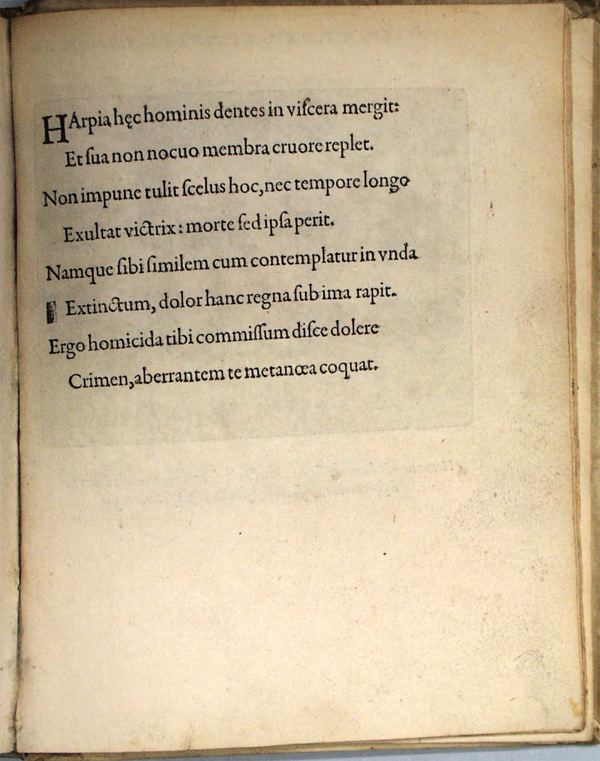 HArpia hęc hominis dentes in viſcera mergit:
Et ſua non nocuo membra cruore replet.
Non impune tulit ſcelus hoc, nec tempore longo
Exultat victrix: morte ſed ipſa perit.
Namque ſibi ſimilem cum contemplatur in vnda
Extinctum, dolor hanc regna ſub ima rapit.
Ergo homicida tibi commiſſum diſce dolere
Crimen, aberrantem te metanœa coquat.